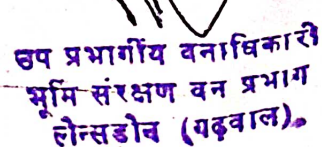 उप प्रभागीय वनाधिकारी
भूमि संरक्षण वन प्रभाग
लैन्सडौन (गढ़वाल)。